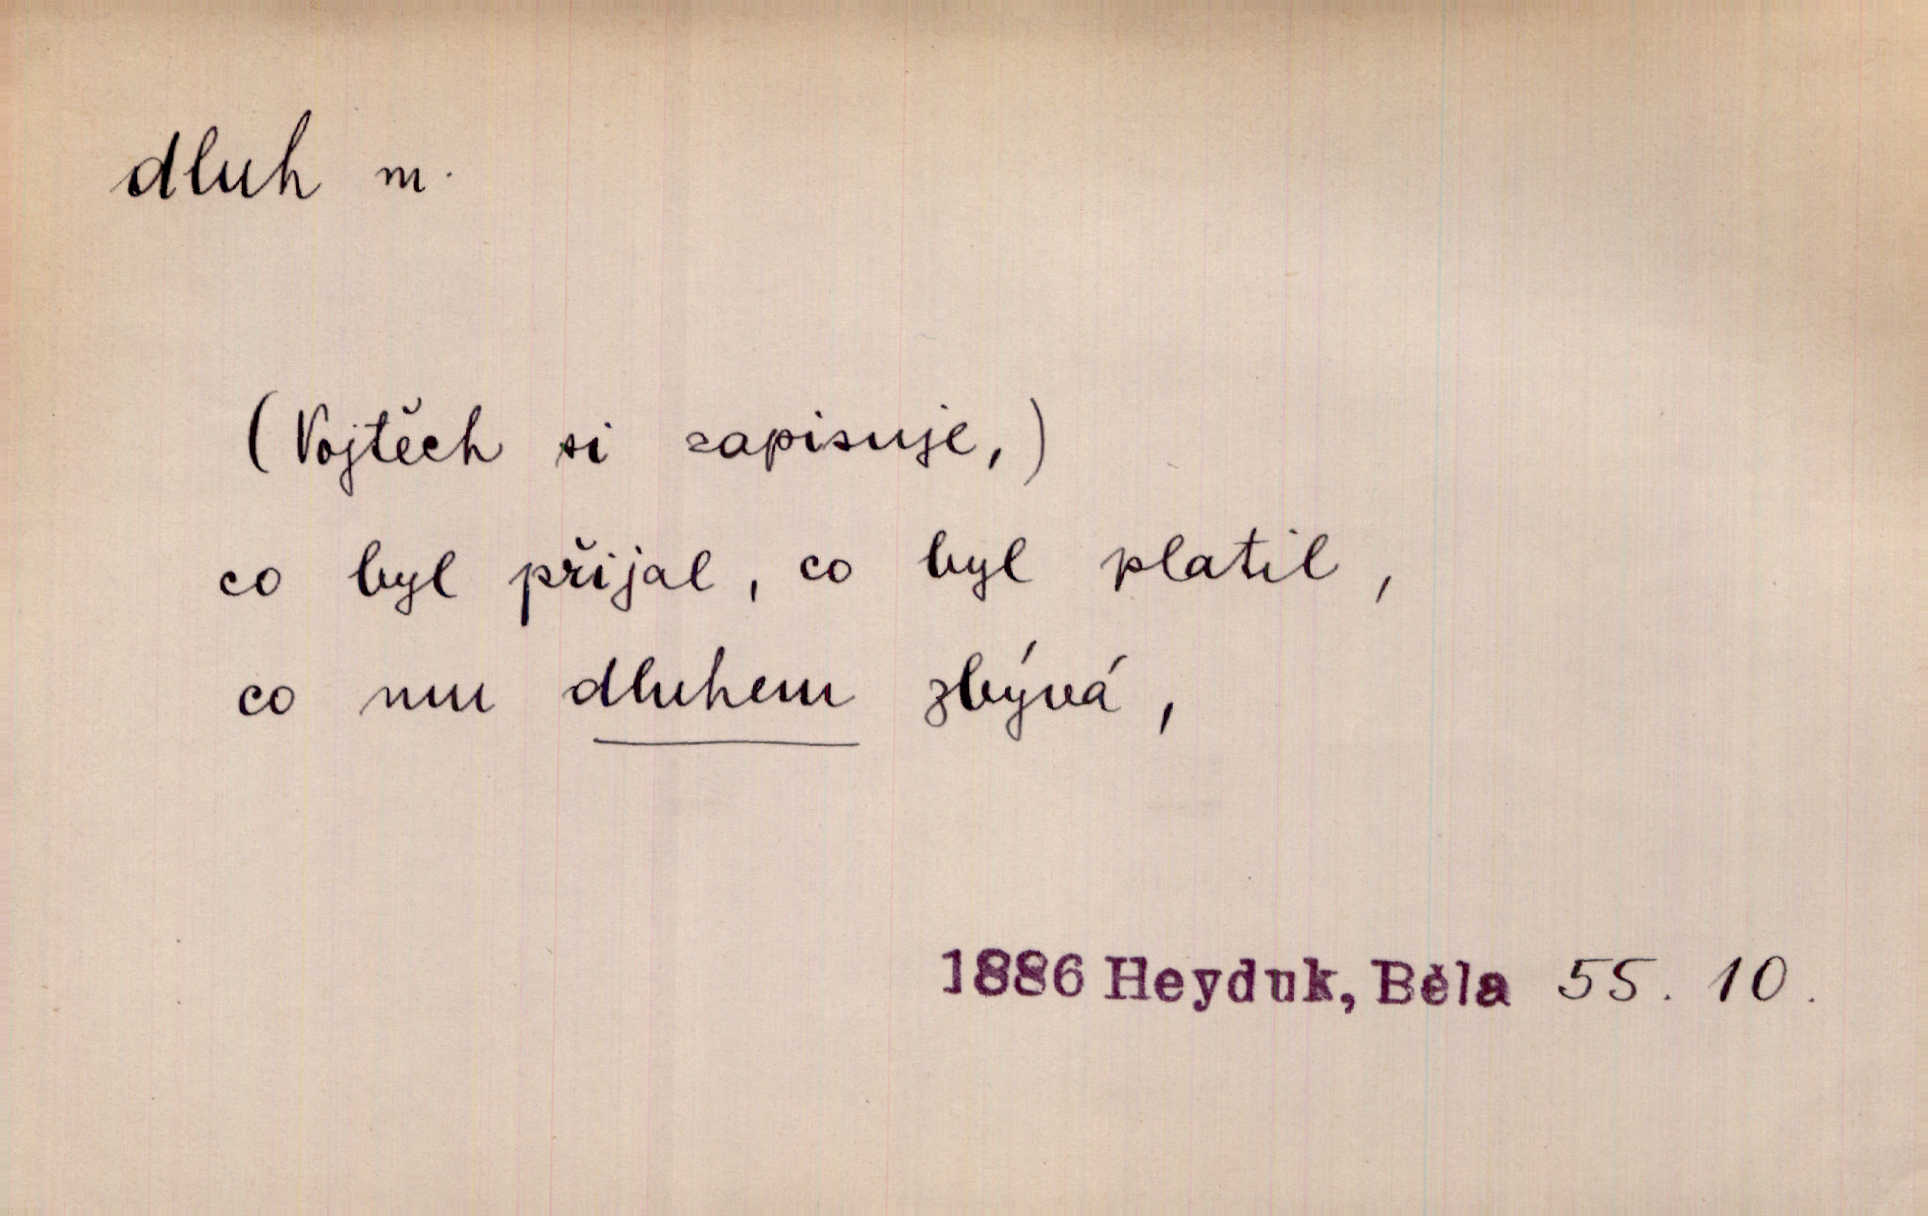 dluh m.
(Vojtěch si zapisuje,)
co byl přijal, co byl platil,
co mu dluhem zbývá,
1886 Heyduk, Běla 55. 10.